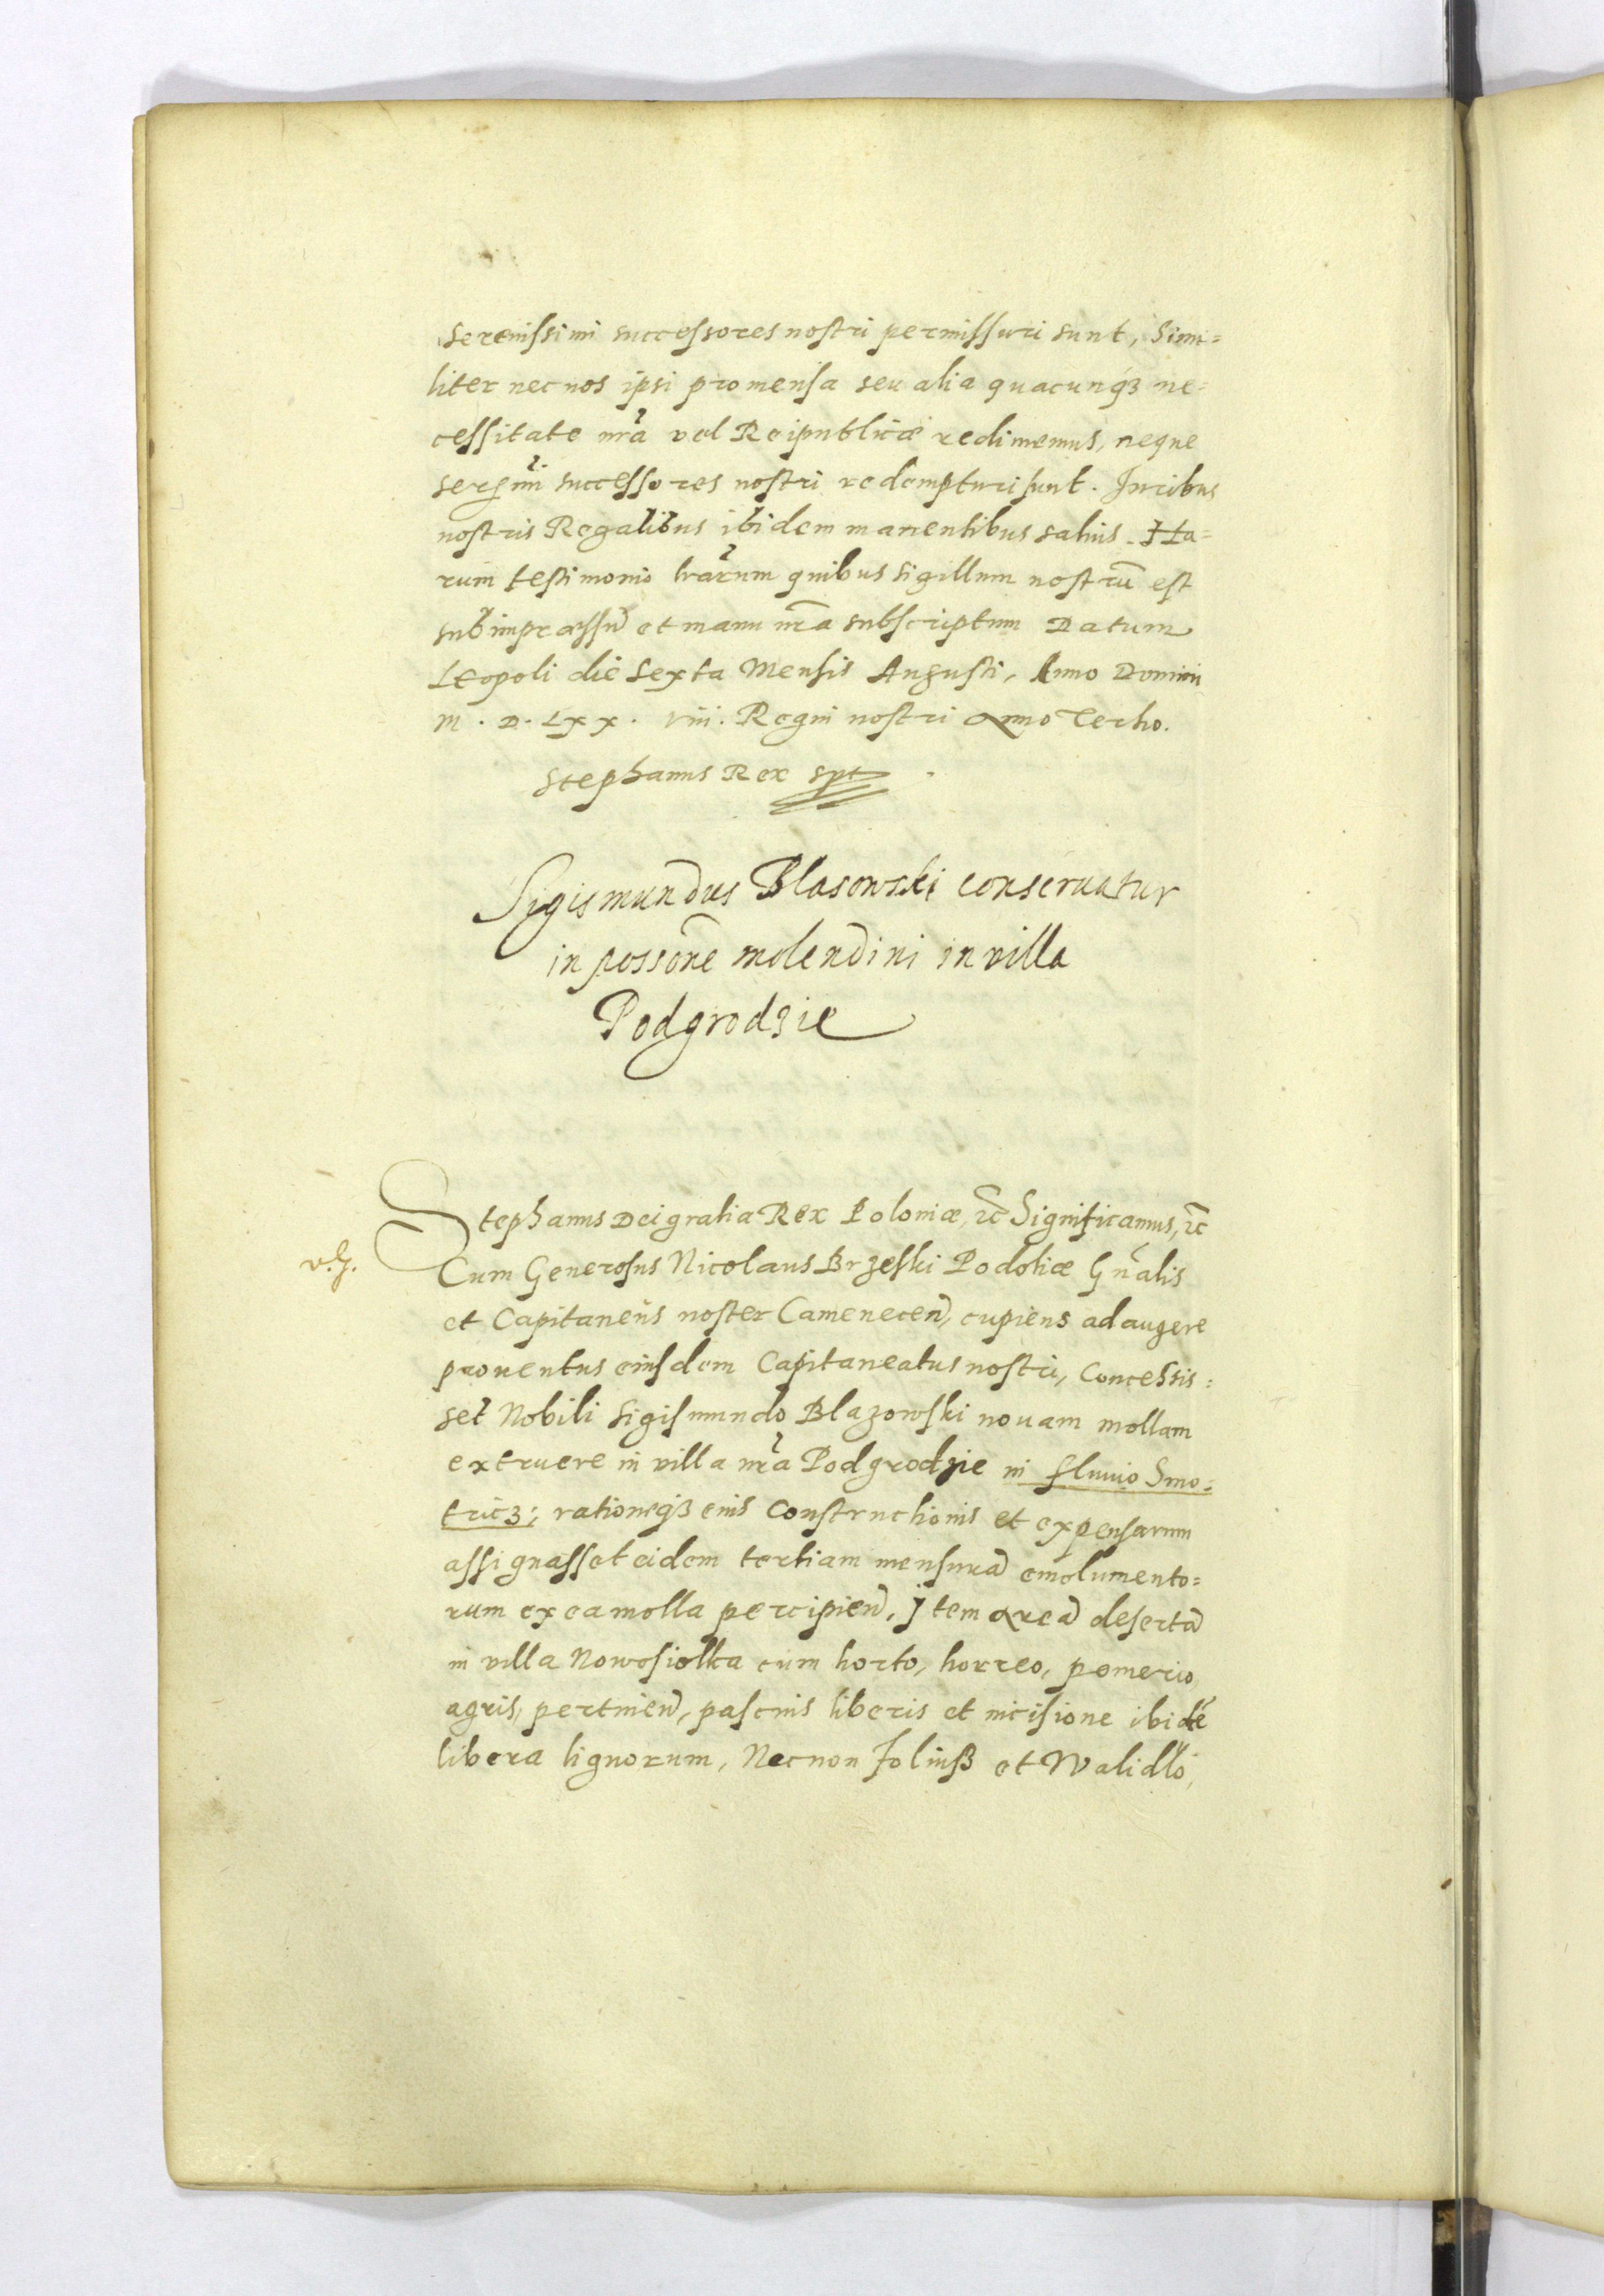 Serenissimi successores nostri permissuri sunt, Simi=
liter nec nos ipsi pro mensa seu alia quacunq3 ne=
cessitate nrã vel Reipublicæ redimemus, neque
sermĩ successores nostri redempturi sunt. Juribus
nostris Regalibus ibidem manentibus saluis. Ha=
rum testimonio lrãrum quibus sigillum nostrũ est
subimpræssũ et manu nrã subscriptum Datum
Leopoli die Sexta Mensis Augusti, Anno Domini
M. D. Lxx. viii. Regni nostri Anno Tertio.
Stephanus Rex spt.
Sigismundus Blasowski conseruatur
in possonẽ molendini in villa
Podgrodzie
Stephanus Dei gratia Rex Poloniæ, ꝛc̃ Significamus, ꝛc̃
v. G.
Cum Generosus Nicolaus Brzeski Podoliæ Gñalis
et Capitaneus noster Cameneceñ, cupiens adaugere
prouentus eiusdem Capitaneatus nostri, Concessis=
set Nobili Sigismundo Blazowski nouam mollam
extruere in villa nrã Podgrodzie in fluuio Smo=
tricz; rationeq3 eius Constructionis et expensarum
assignasset eidem tertiam mensurã emolumento=
rum ex ea molla percipieñ, Jtem Areã desertã
in villa Nowosiolka cum horto, horreo, pomerio
agris, pertineñ, pascuis liberis et incisione ibidẽ
libera lignorum, Necnon Joliusß et Walidło,